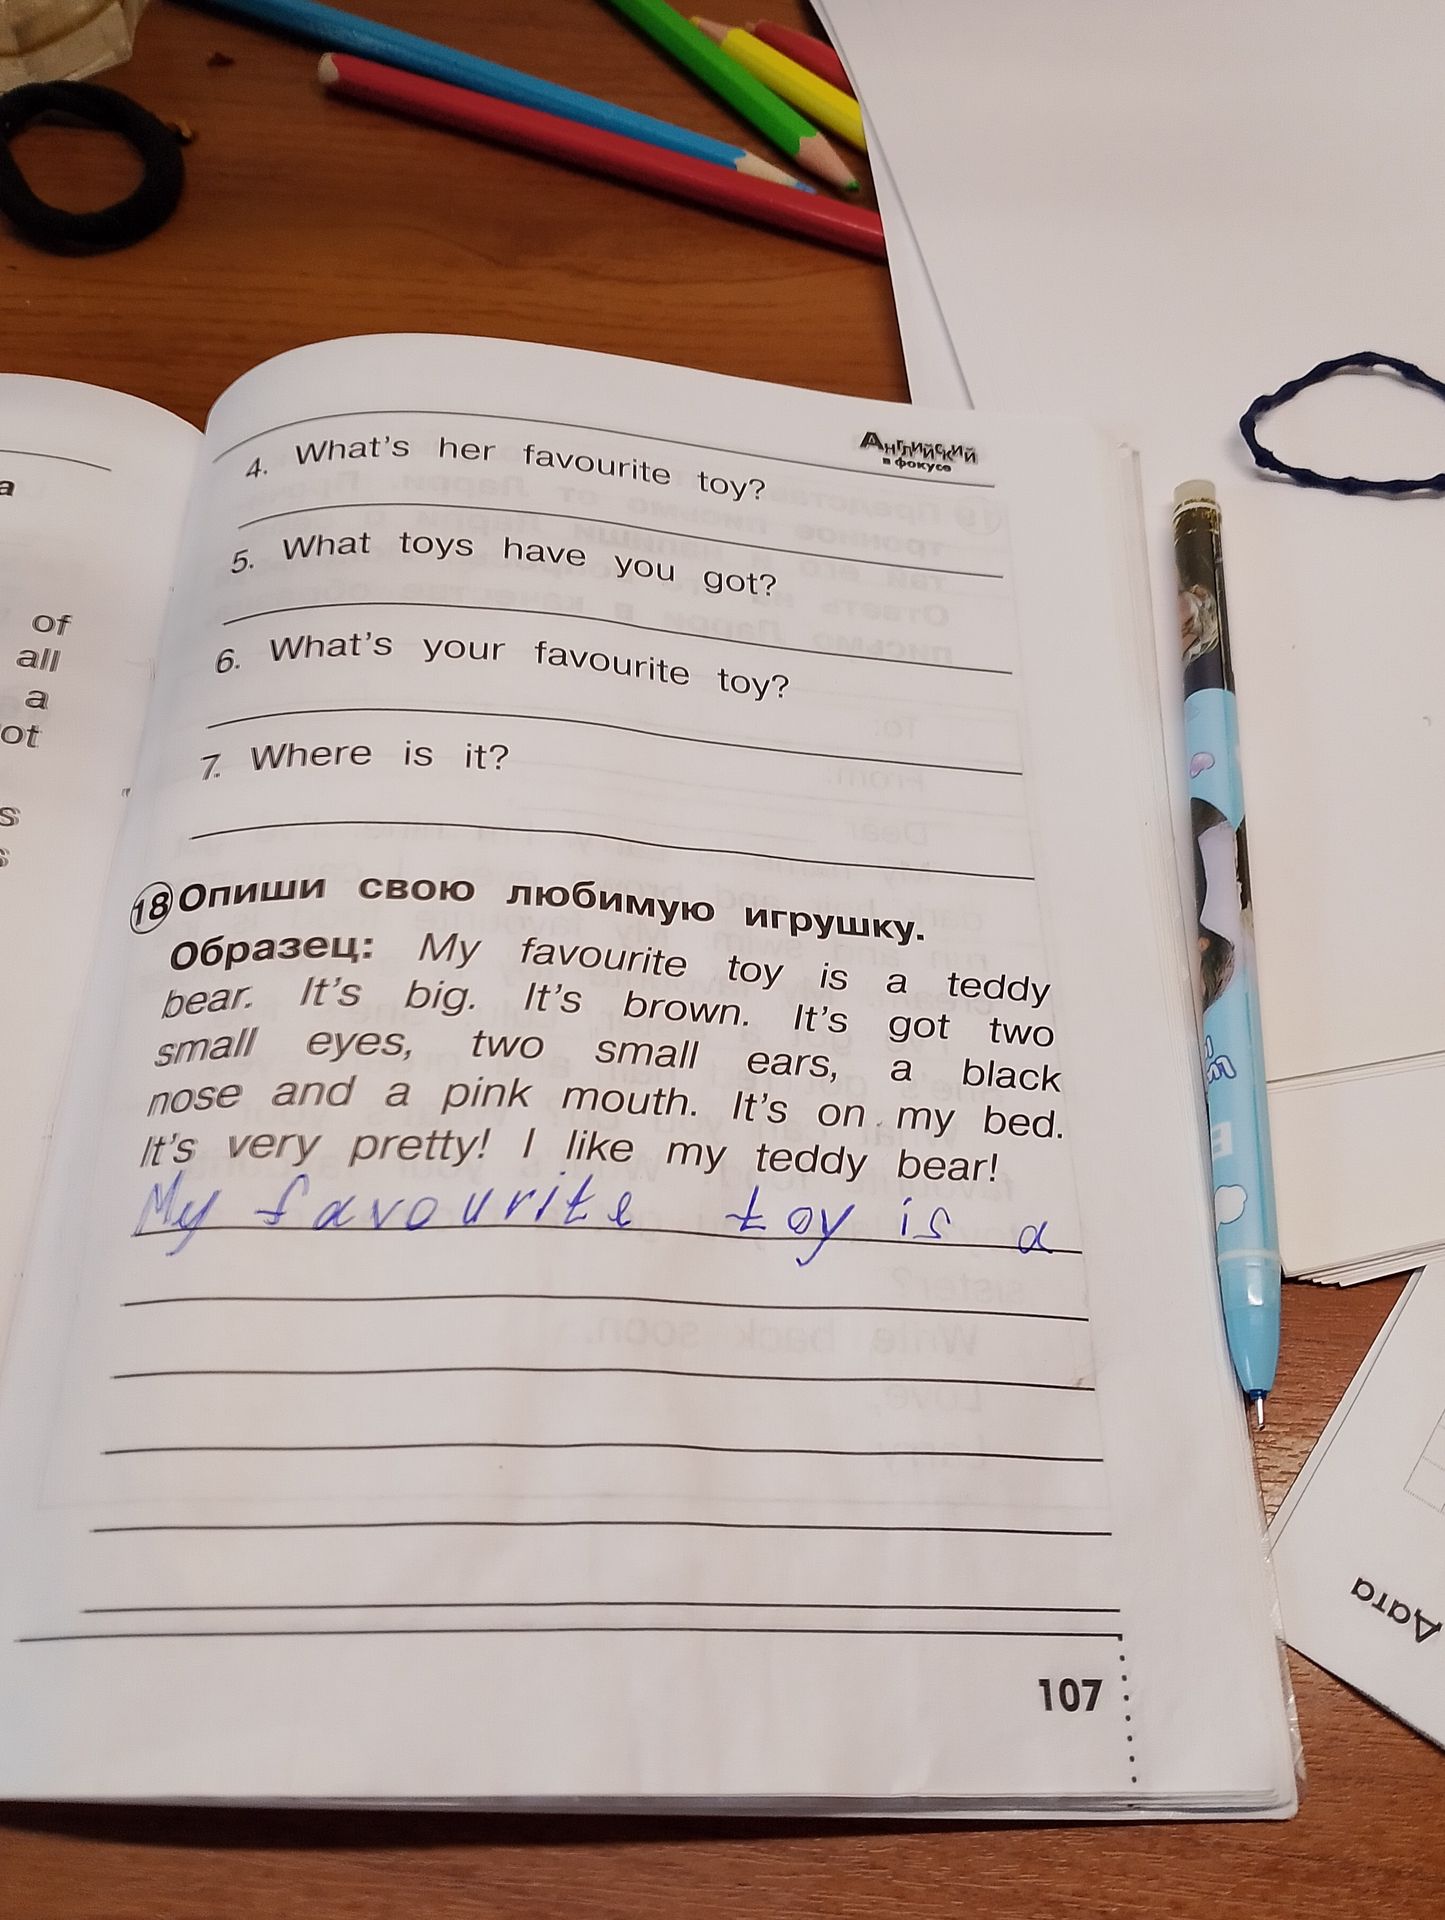 а
of
all
a
ot
s
s
Английский
в фокусе
4. What's her favourite toy?
5. What toys have you got?
6. What's your favourite toy?
7. Where is it?
18 Опиши свою любимую игрушку.
Образец: My favourite toy is a teddy
bear. It's big. It's brown. It's got two
small eyes, two small ears, a black
nose and a pink mouth. It's on my bed.
It's very pretty! I like my teddy bear!
My favourite toy is a
107
Дата